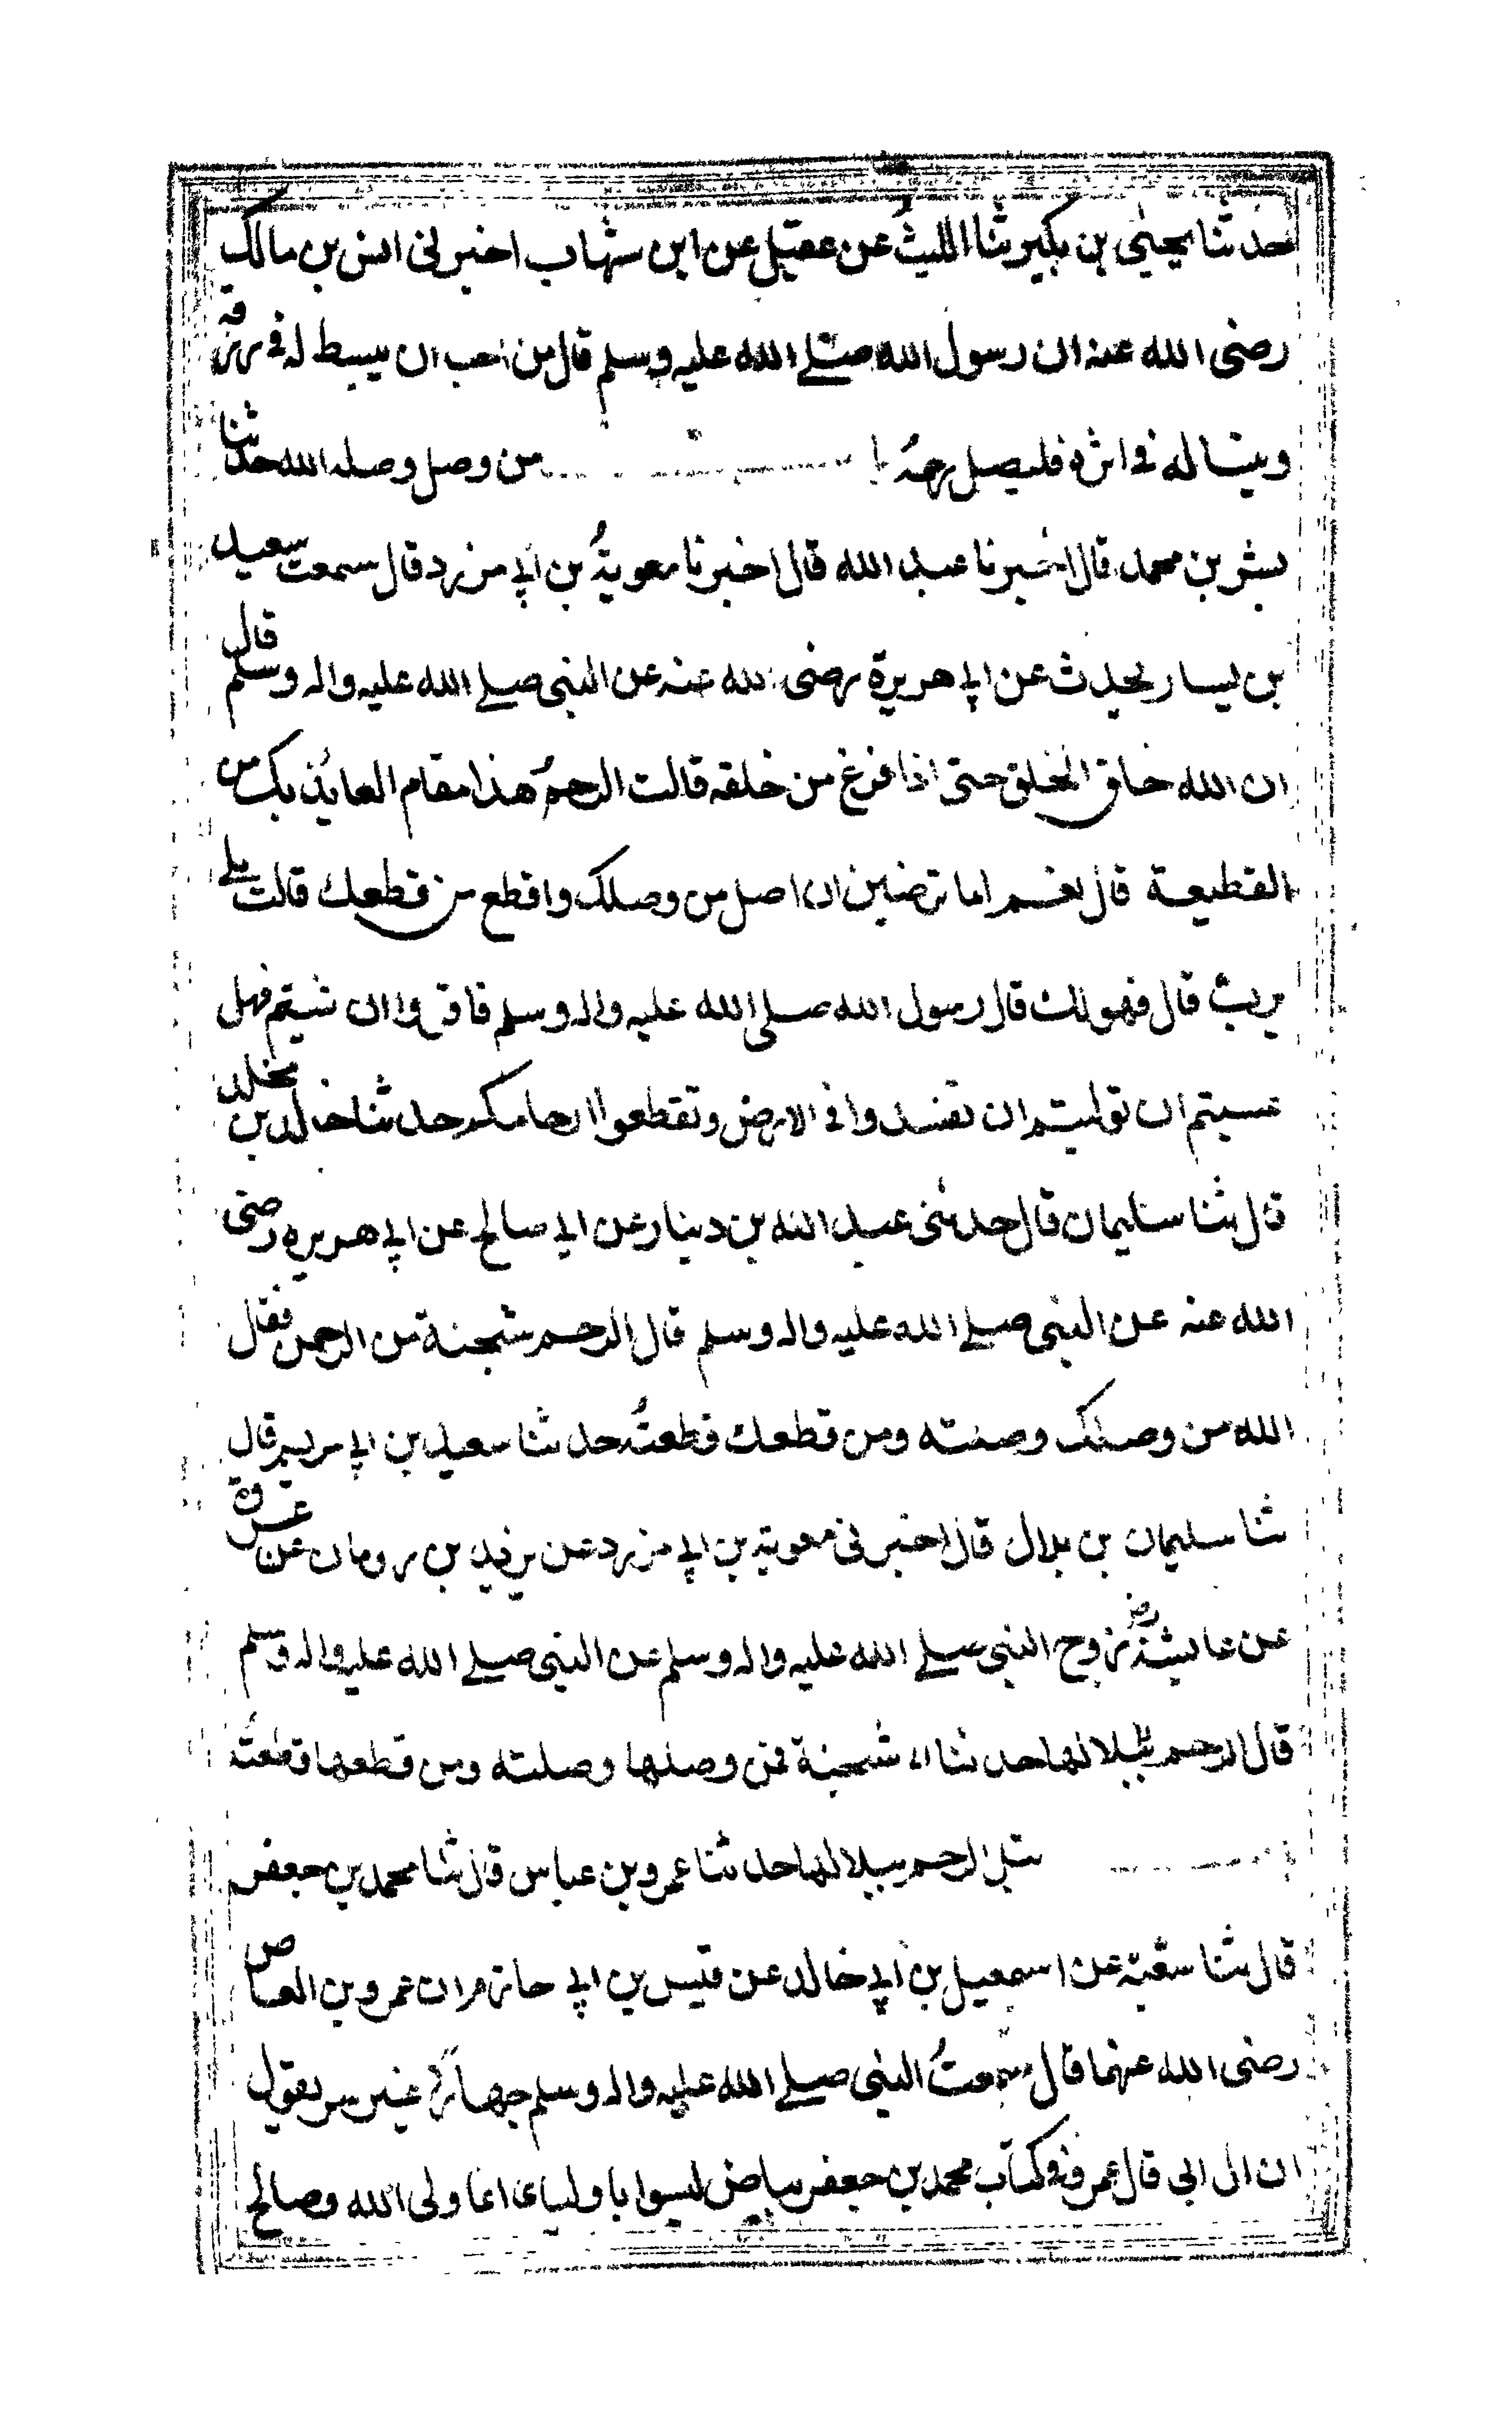 حدثنا يحيى بن بكير ثنا الليث عن عقيل عن ابن شهاب اخبرني انس بن مالك
رضى الله عنه ان رسول الله صلے الله عليه وسلم قال من احب ان يبسط له في رزقه
وينساله في اثره فليصل رحمه با من وصل وصله الله حدثنا
بشر بن محمد قال اخبرنا عبد الله قال اخبرنا معوية بن ابي مزرد قال سمعت سعيد
بن يسار يحدث عن ابي هريرة رضى الله عنه عن النبي صلے الله عليه واله وسلم قال
ان الله خلق الخلق حتى اذا فرغ من خلقه قالت الرحم هذا مقام العايذ بك من
القطيعة قال نعم اما ترضين ان اصل من وصلك واقطع من قطعك قالت بلے
يرب قال فهو لك قال رسول الله صلى الله عليه واله وسلم فاقرؤا ان شيتم فهل
عسيتم ان توليتم ان تفسدوا في الارض وتقطعوا ارحامكم حدثنا خالد بن مخلد
قال ثنا سليمان قال حدثنى عبد الله بن دينار عن ابي صالح عن ابي هريره رضى
الله عنه عن النبي صلے الله عليه واله وسلم قال الرحم شجنة من الرحمن فقال
الله من وصلك وصلته ومن قطعك قطعته حدثنا سعيد بن ابي مريم قال
ثنا سليمان بن بلال قال اخبرني معوية بن ابي مزرد عن يزيد بن رومان عن عروة
عن عايشة رض زوج النبي صلے الله عليه واله وسلم عن النبي صلے الله عليه واله وسلم
قال الرحم ببلالها حدثنا شجنة فمن وصلها وصلته ومن قطعها قطعته
تبل الرحم ببلالها حدثنا عمرو بن عباس قال ثنا محمد بن جعفر
قال ثنا شعبة عن اسمعيل بن ابي خالد عن قيس بن ابي حازم ان عمرو بن العاص
رضى الله عنهما قال سمعت النبي صلے الله عليه واله وسلم جهارا غير سر يقول
ان ال ابي قال عمرو في كتاب محمد بن جعفر بياض ليسوا باوليائ انما ولى الله وصالح